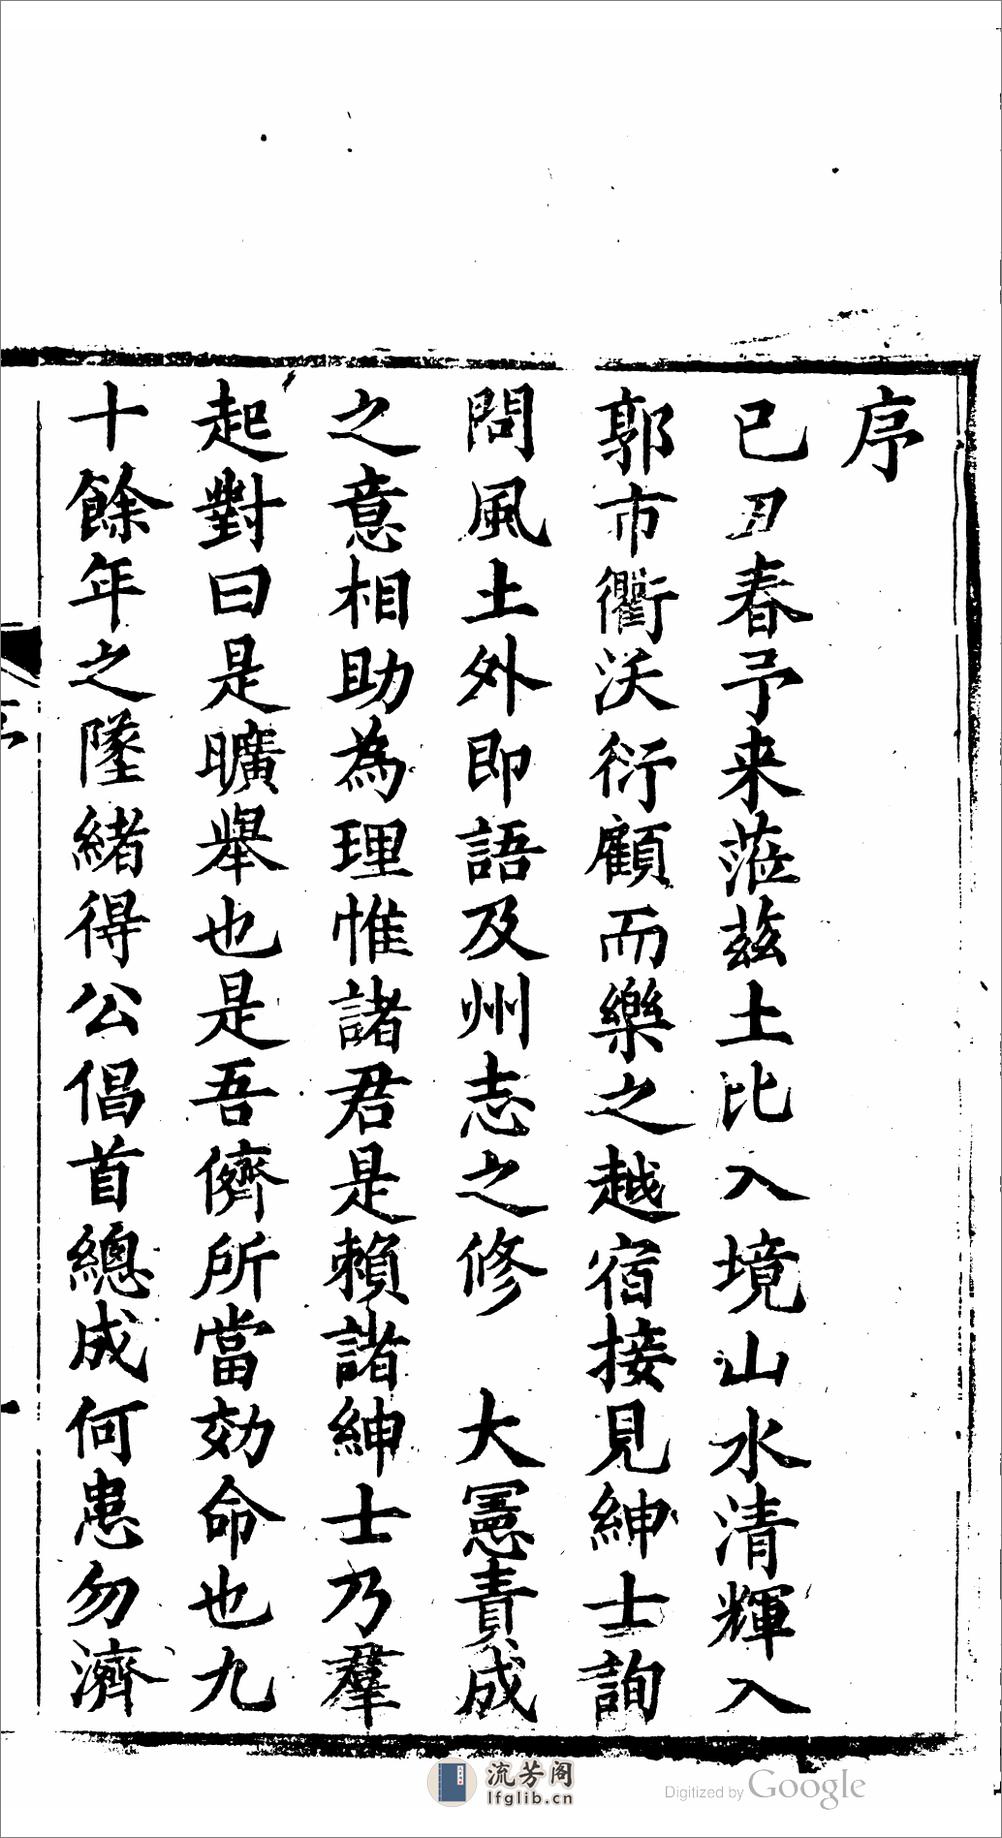 序
己丑春予来蒞茲土比入境山水清輝入
郭市衢沃衍顧而樂之越宿接見紳士詢
問風土外即語及州志之修　大憲責成
之意相助為理惟諸君是賴諸紳士乃羣
起對曰是曠舉也是吾儕所當効命也九
十餘年之墜緒得公倡首總成何患勿濟
流芳阁
lfglib.cn
Digitized by Google